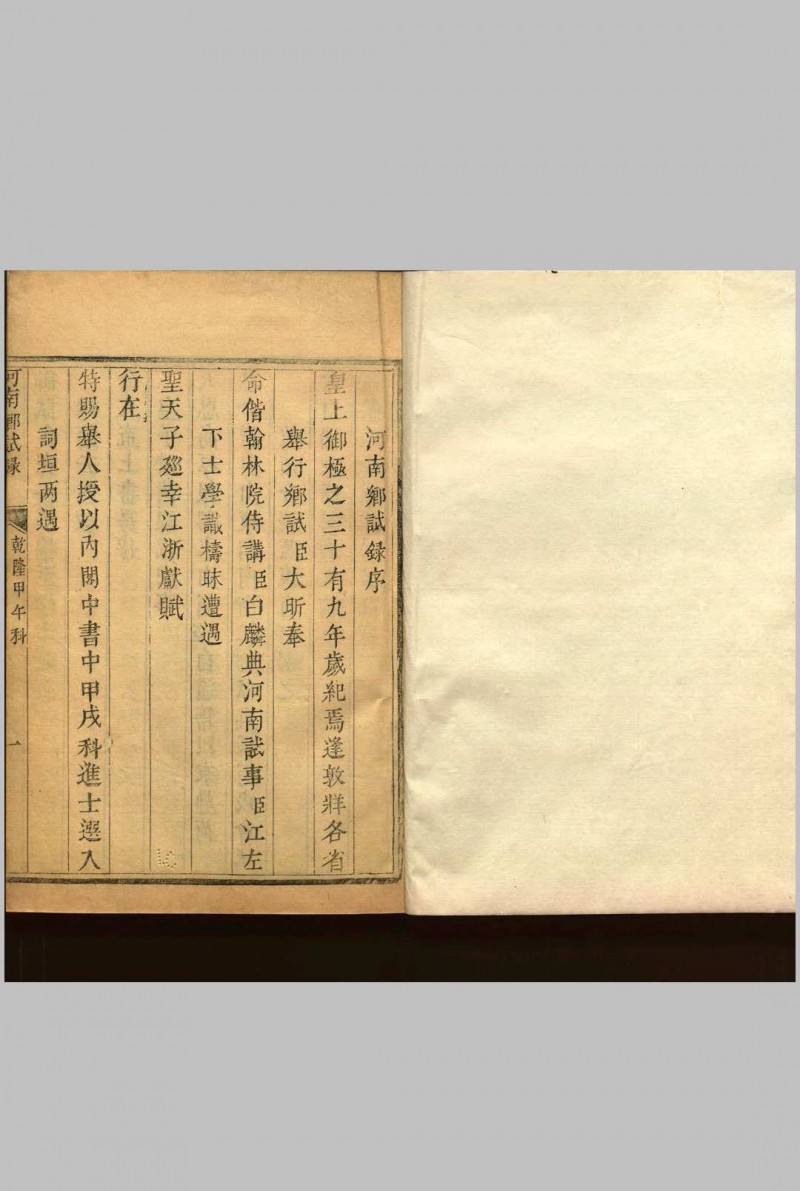 河南鄉試錄序
皇上御極之三十有九年歲紀焉逢敦牂各省
舉行鄉試臣大昕奉
命偕翰林院侍講臣白麟典河南試事臣江左
下士學識檮昧遭遇
聖天子廵幸江浙獻賦
行在
特賜舉人授以內閣中書中甲戌科進士選入
詞垣两遇
河南鄉試錄
乾隆甲午科
一